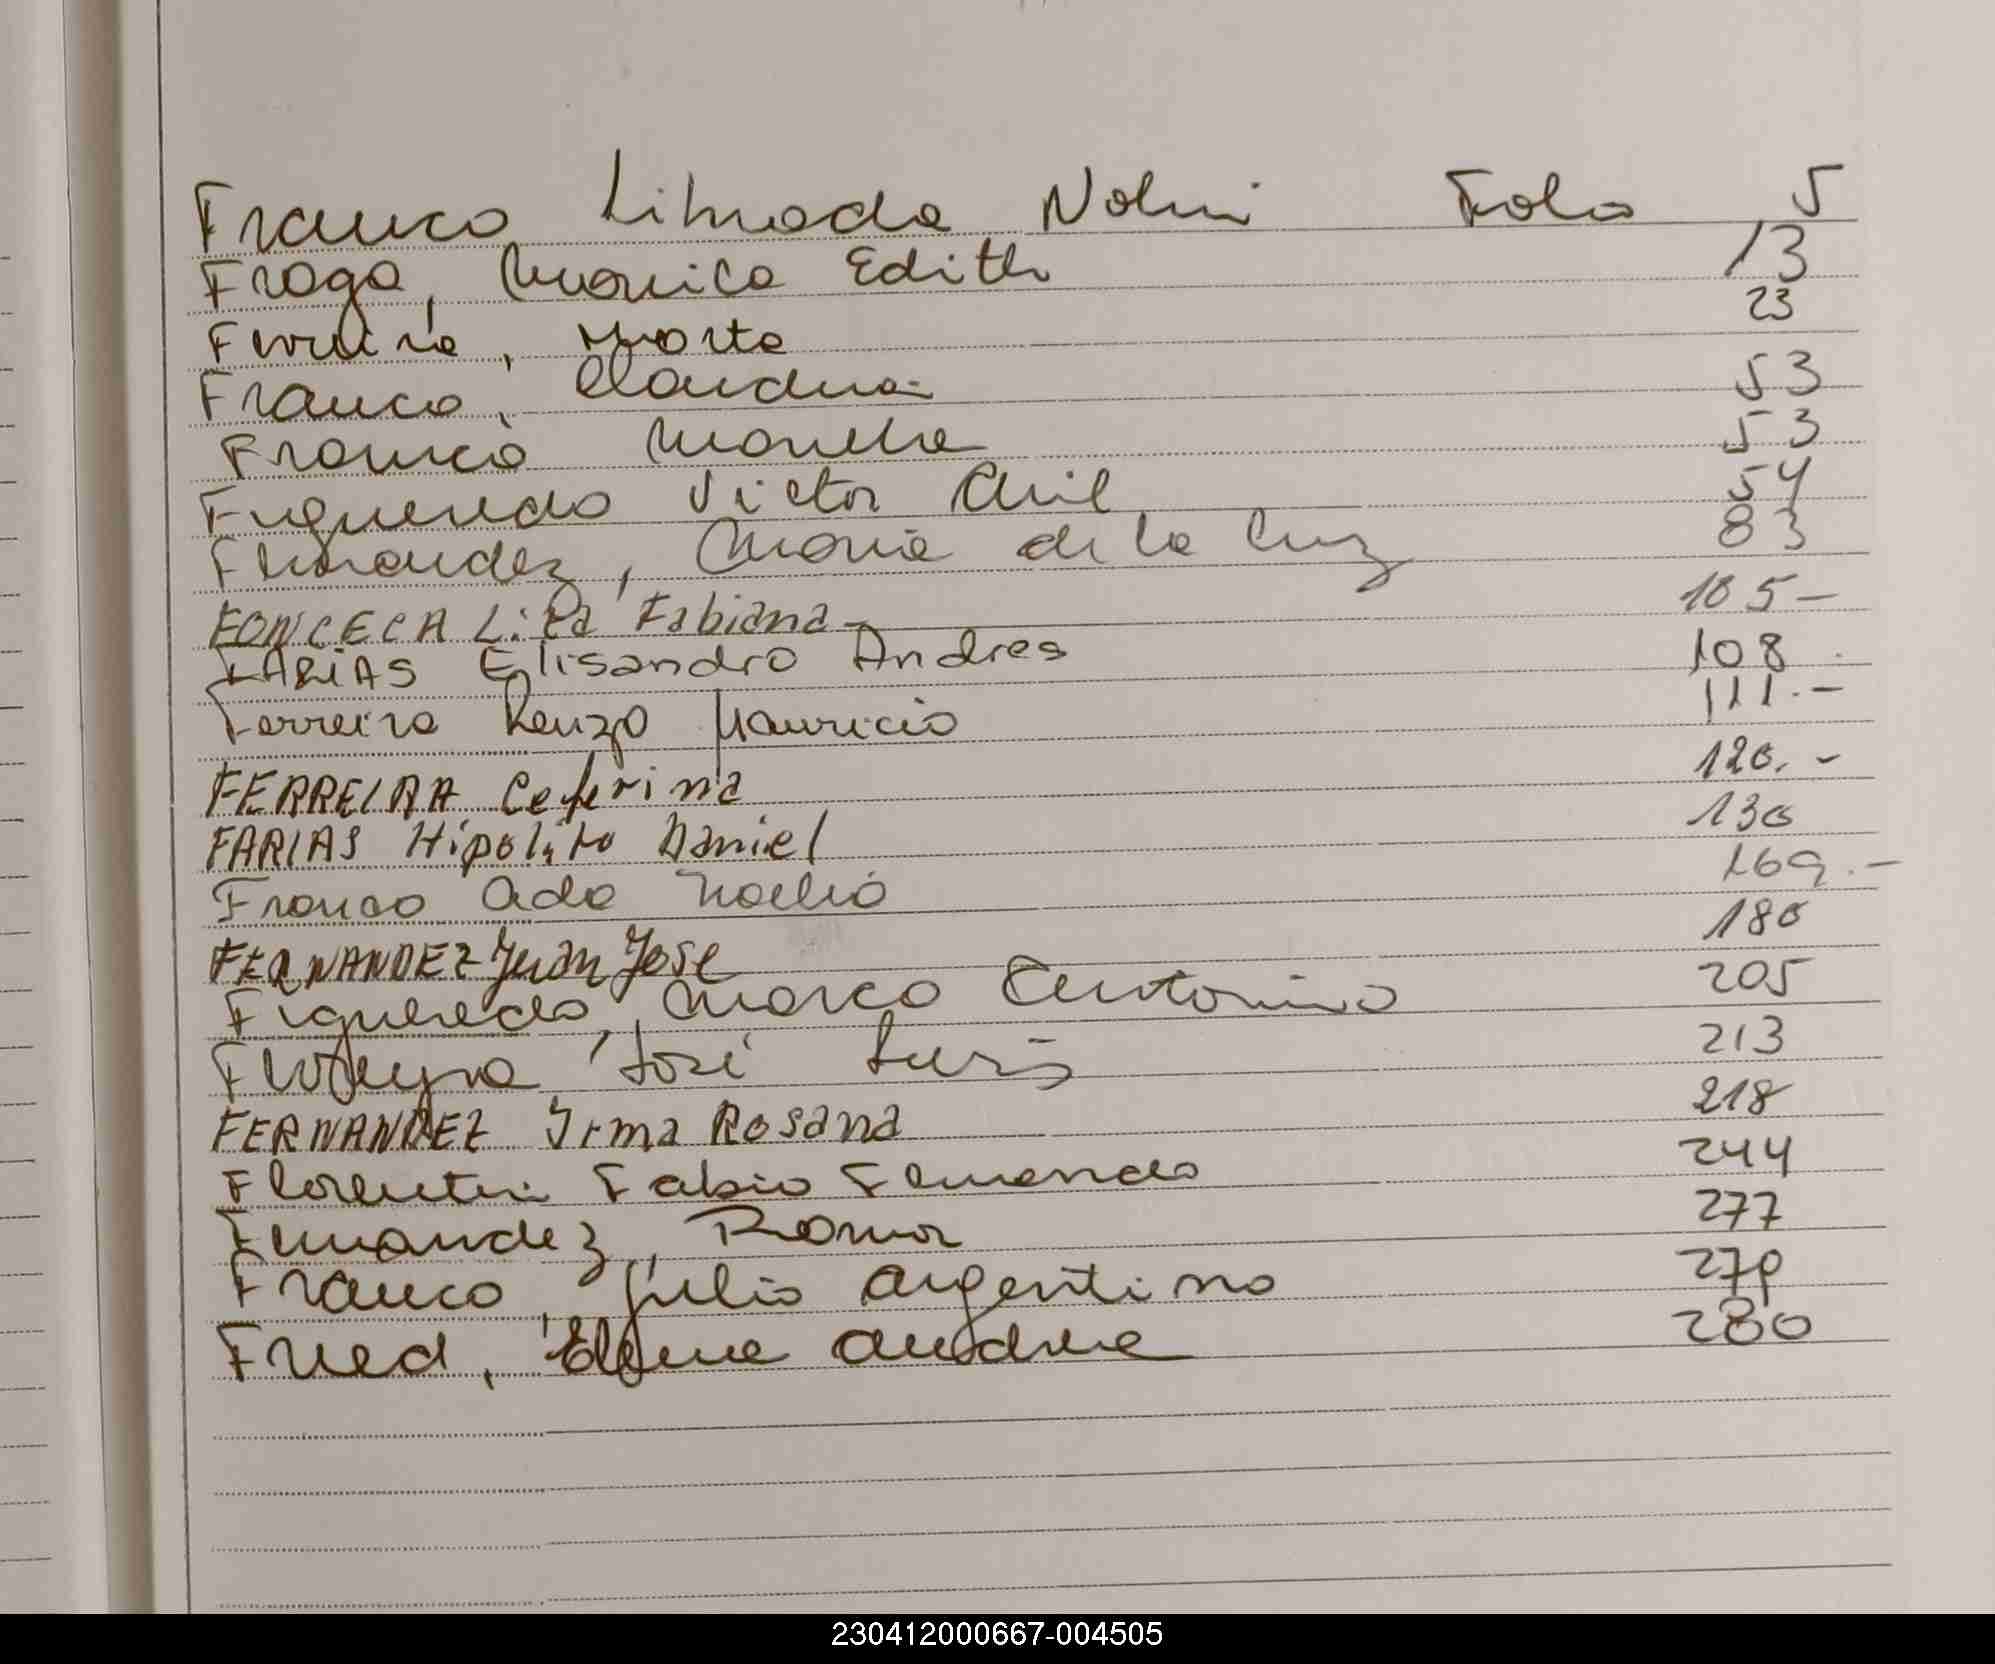 Franco Limada Nolui Folio 5
Fraga, Monica Edith 13
Ferreira, Marta 23
Franco, Claudia 53
Franco Monica 53
Figueredo Victor Ariel 54
Fernandez, Maria de la Luz 83
FONCECA Lira Fabiana 105-
FARIAS Elisandro Andres 108
Ferreira Renzo Mauricio 111.-
FERREIRA Ceferina 120.-
FARIAS Hipolito Daniel 130
Franco Ada Noelia 169.-
FERNANDEZ Juan José 180
Figueredo, Marco Antonio 205
Ferreyra José Luis 213
FERNANDEZ Irma Rosana 218
Florentin Fabio Fernando 244
Fernandez, Ramon 277
Franco, Julio Argentino 279
Fried, Elena Andrea 280
230412000667-004505